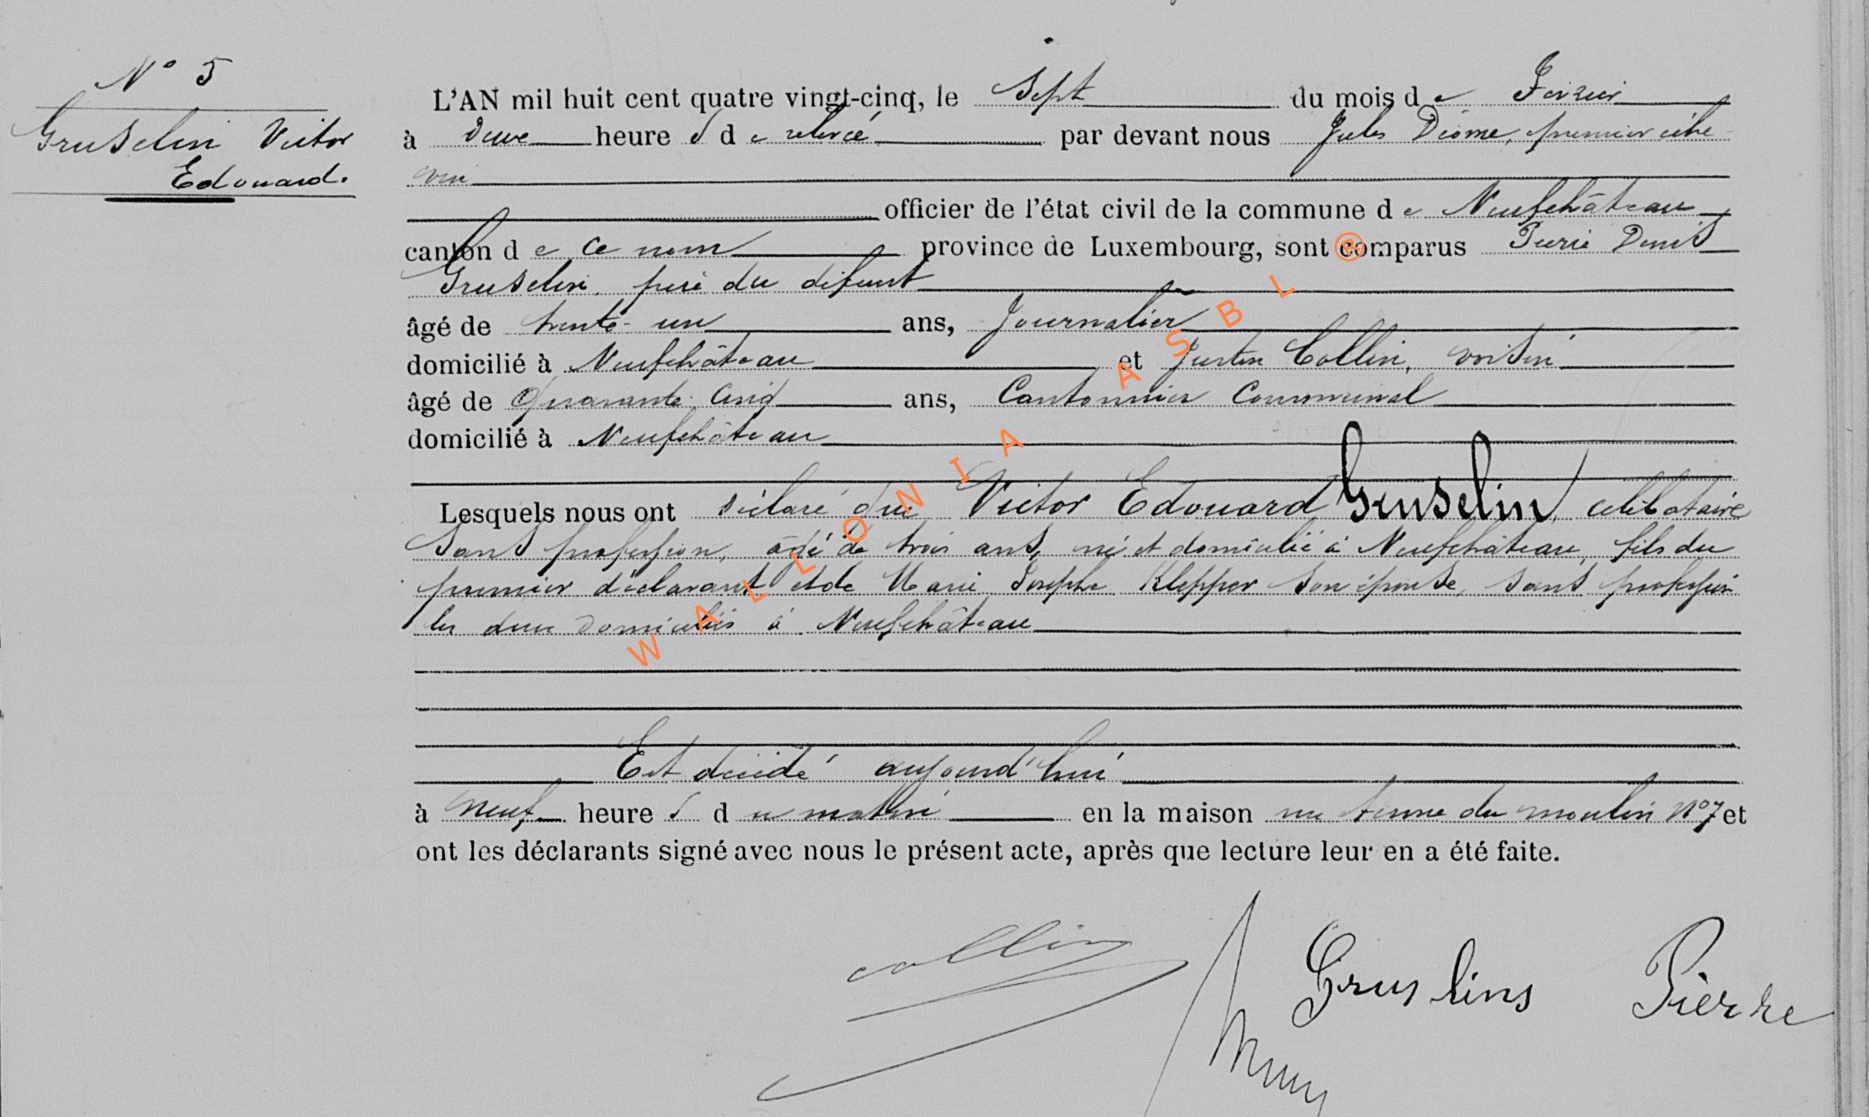 N° 5
Gruselin Victor
Edouard.
L'AN mil huit cent quatre vingt-cinq, le Sept du mois de Février
à deux heures de relevé par devant nous Jules Diome, premier éche-
vin
officier de l'état civil de la commune de Neufchâteau
canton de ce nom province de Luxembourg, sont comparus Pierre Denis
Gruselin, père du défunt
âgé de trente-un ans, Journalier
domicilié à Neufchâteau et Justin Collin, voisin
âgé de Quarante cinq ans, Cantonnier Communal
domicilié à Neufchâteau
Lesquels nous ont déclaré que Victor Edouard Gruselin, célibataire
Sans profession, âgé de trois ans, né et domicilié à Neufchâteau, fils du
premier déclarant et de Marie Josephe Klepper son épouse, sans profession
les deux domiciliés à Neufchâteau
Est décédé aujourd'hui
à Neuf heures du matin en la maison du moulin N° 7 et
ont les déclarants signé avec nous le présent acte, après que lecture leur en a été faite.
collin
Gruslins Pièrre
WALLONIA ASBL ®